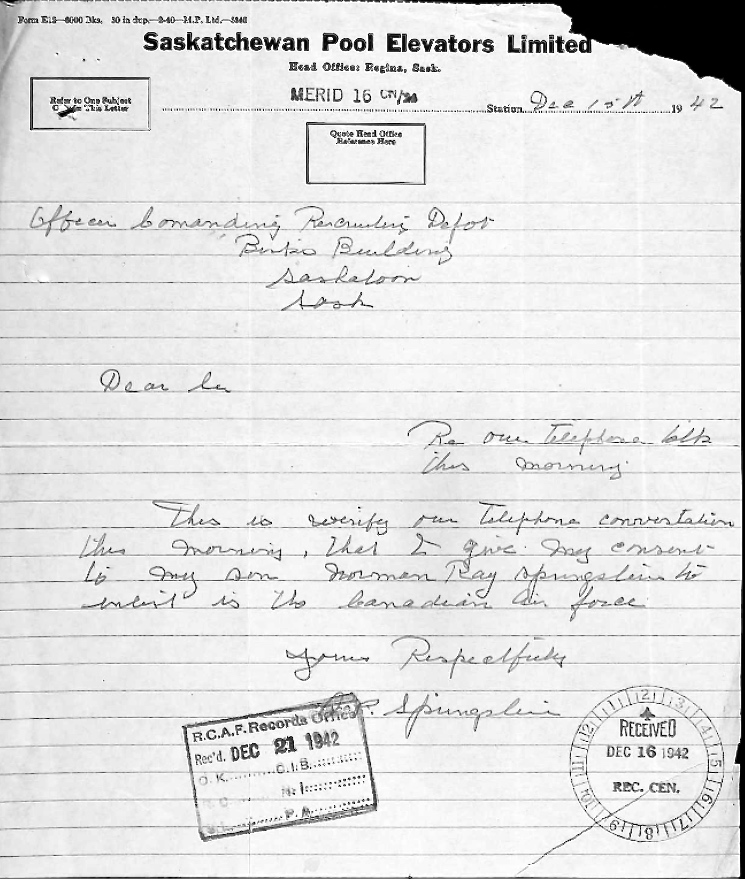 Form E12—6000 Bks. 50 in dup.—2-40—M.P. Ltd.—
Saskatchewan Pool Elevators Limited
Head Office: Regina, Sask.
MERID 16
Refer to One Subject
This Letter
Station Dec 15th 1942
Quote Head Office
Reference Here
Officer Comanding Recruiting Depot
Building
Saskatoon
Sask
Dear Sir
Re our telephone talk
this morning
This is verify our telephone conversation
this morning, that I give my consent
to my son Norman Ray Springstein to
enlist in the Canadian Air force
Yours Respectfully
P. Springstein
R.C.A.F. Records Office
Rec'd. DEC 21 1942
O.K. C.I.B.
P.A.
12 13 14 15 16 17 18 19
RECEIVED
DEC 16 1942
REC. CEN.